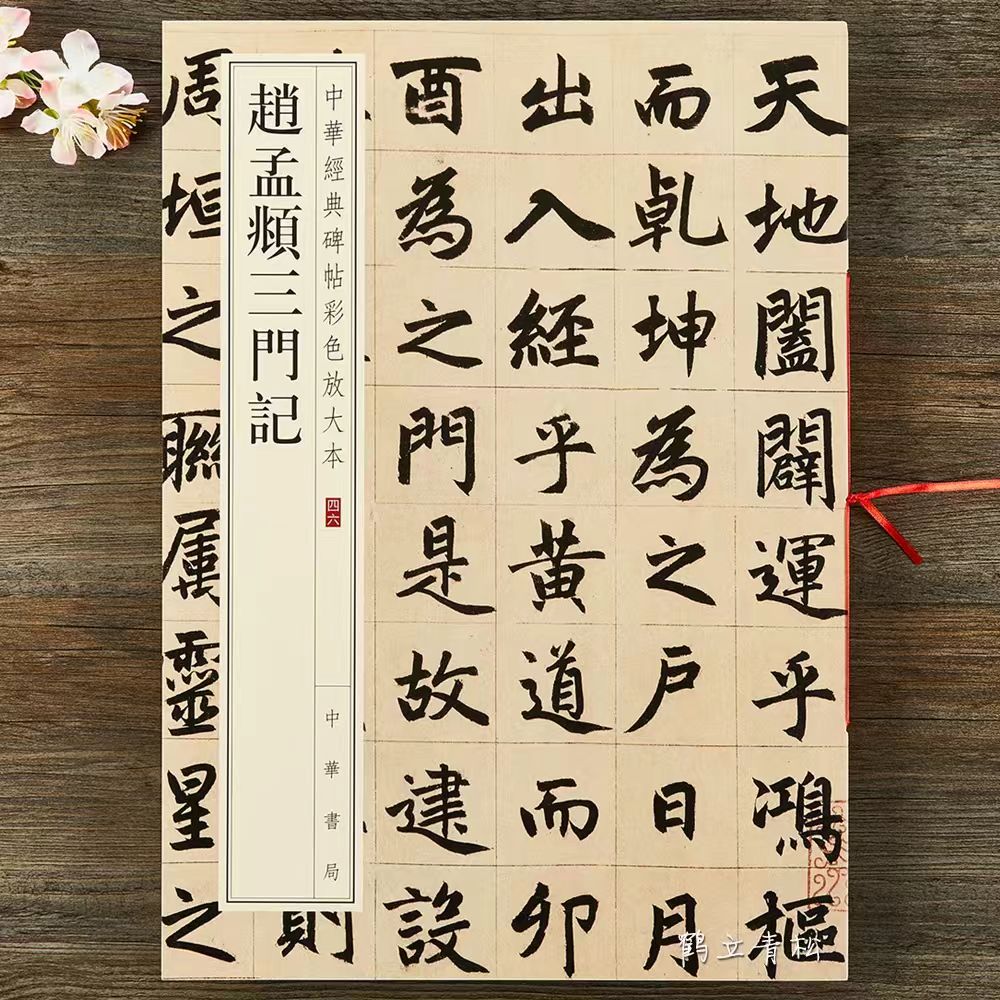 天地闔闢運乎鴻樞
而乹坤為之戶日月
出入經乎黃道而卯
酉為之門是故建設
則
周垣之聯属靈星之
中華經典碑帖彩色放大本
四六
中華書局
趙孟頫三門記
鹤立青松